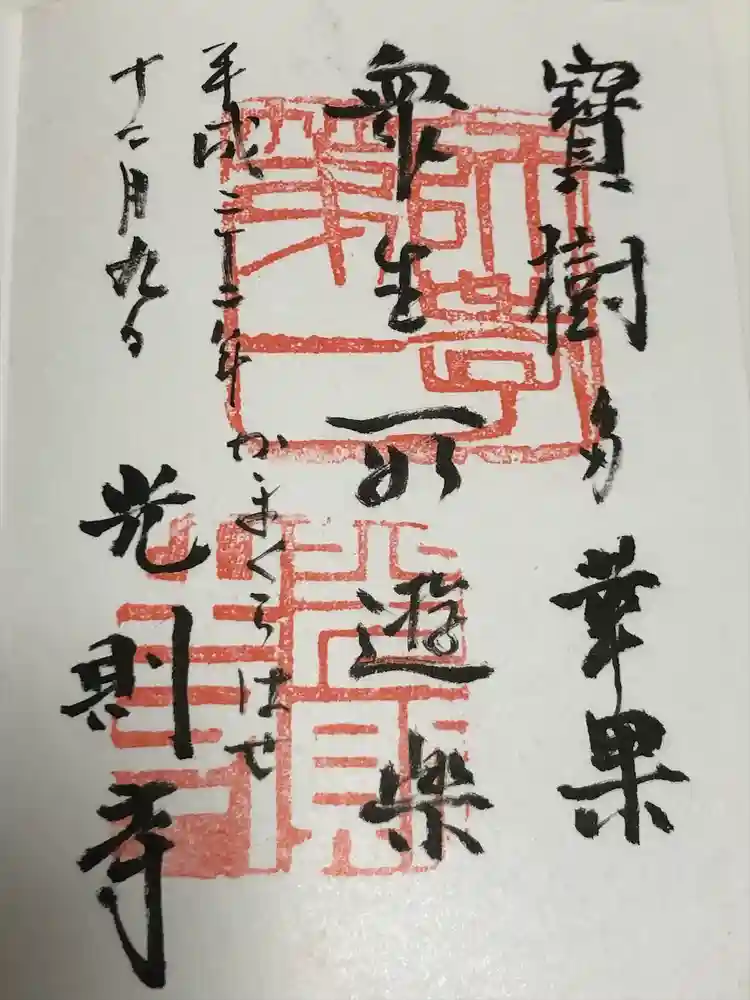 寶樹多華果
衆生所遊楽
平成二十二年
かまくらはせ
十二月九日
光則寺